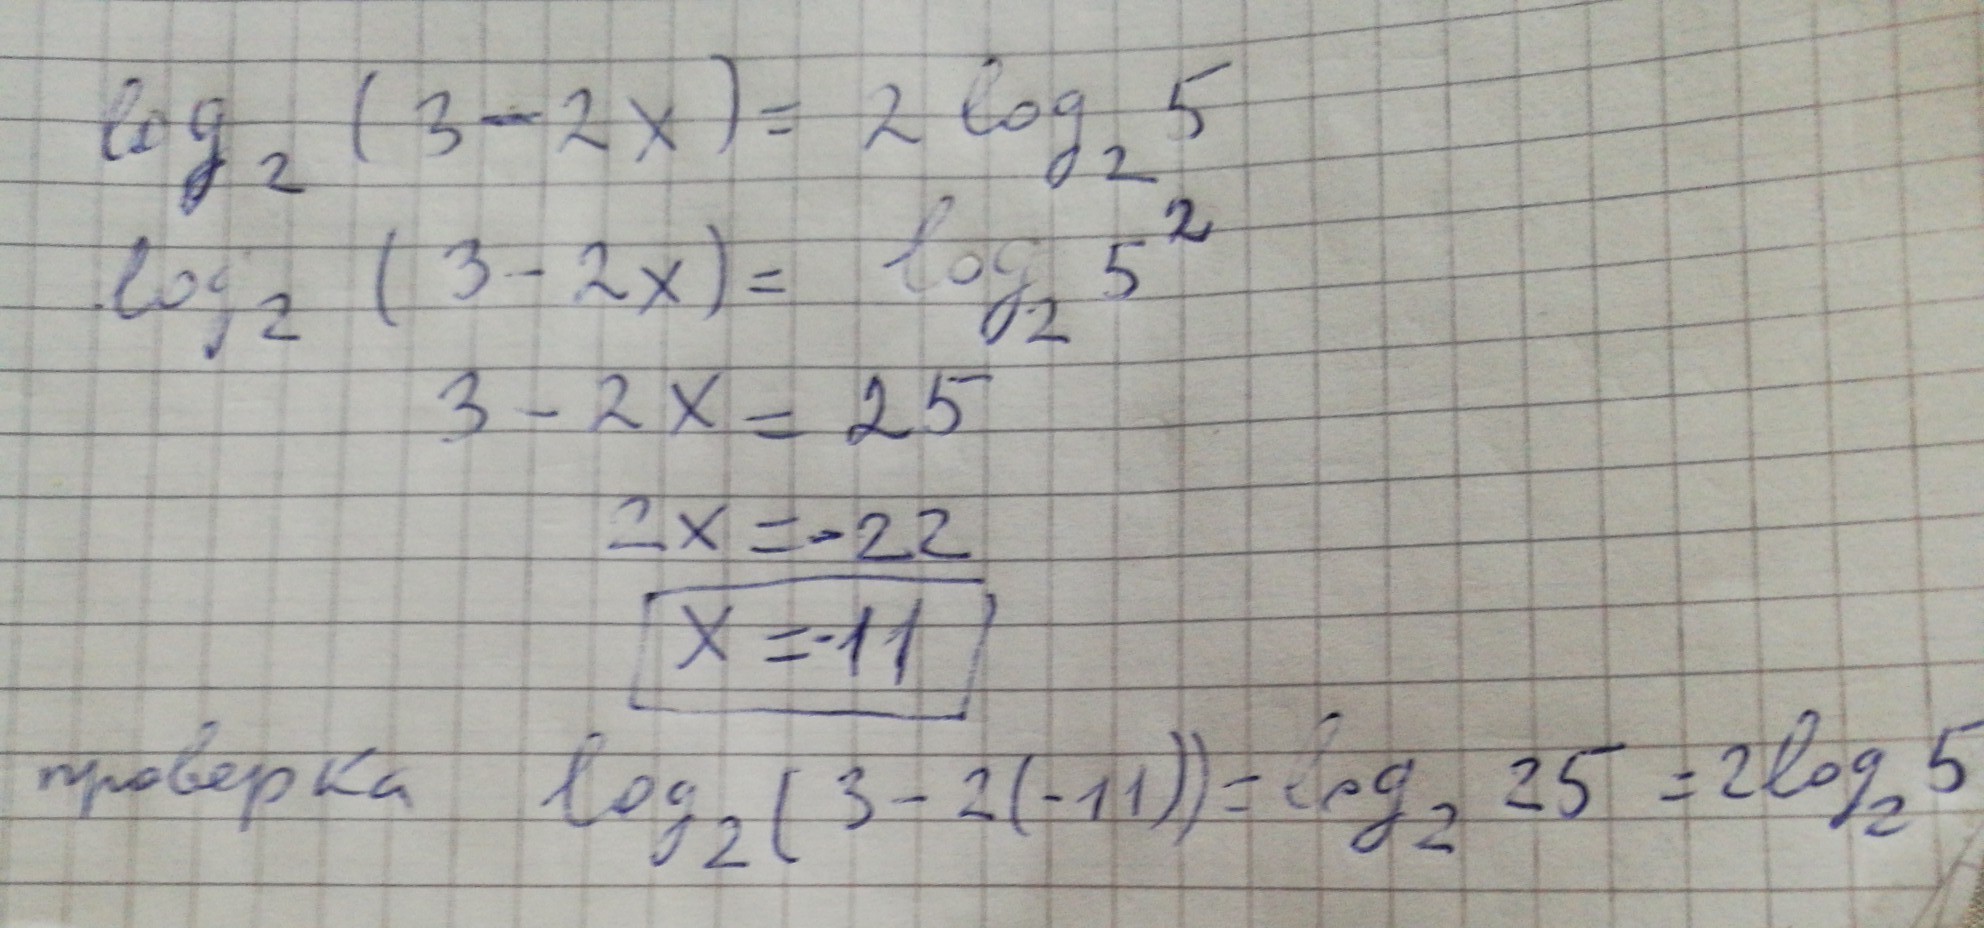 log₂ (3-2x)= 2 log₂ 5
log₂ (3-2x)= log₂ 5²
3-2x=25
2x=-22
x=-11
проверка log₂(3-2(-11))=log₂ 25=2log₂5